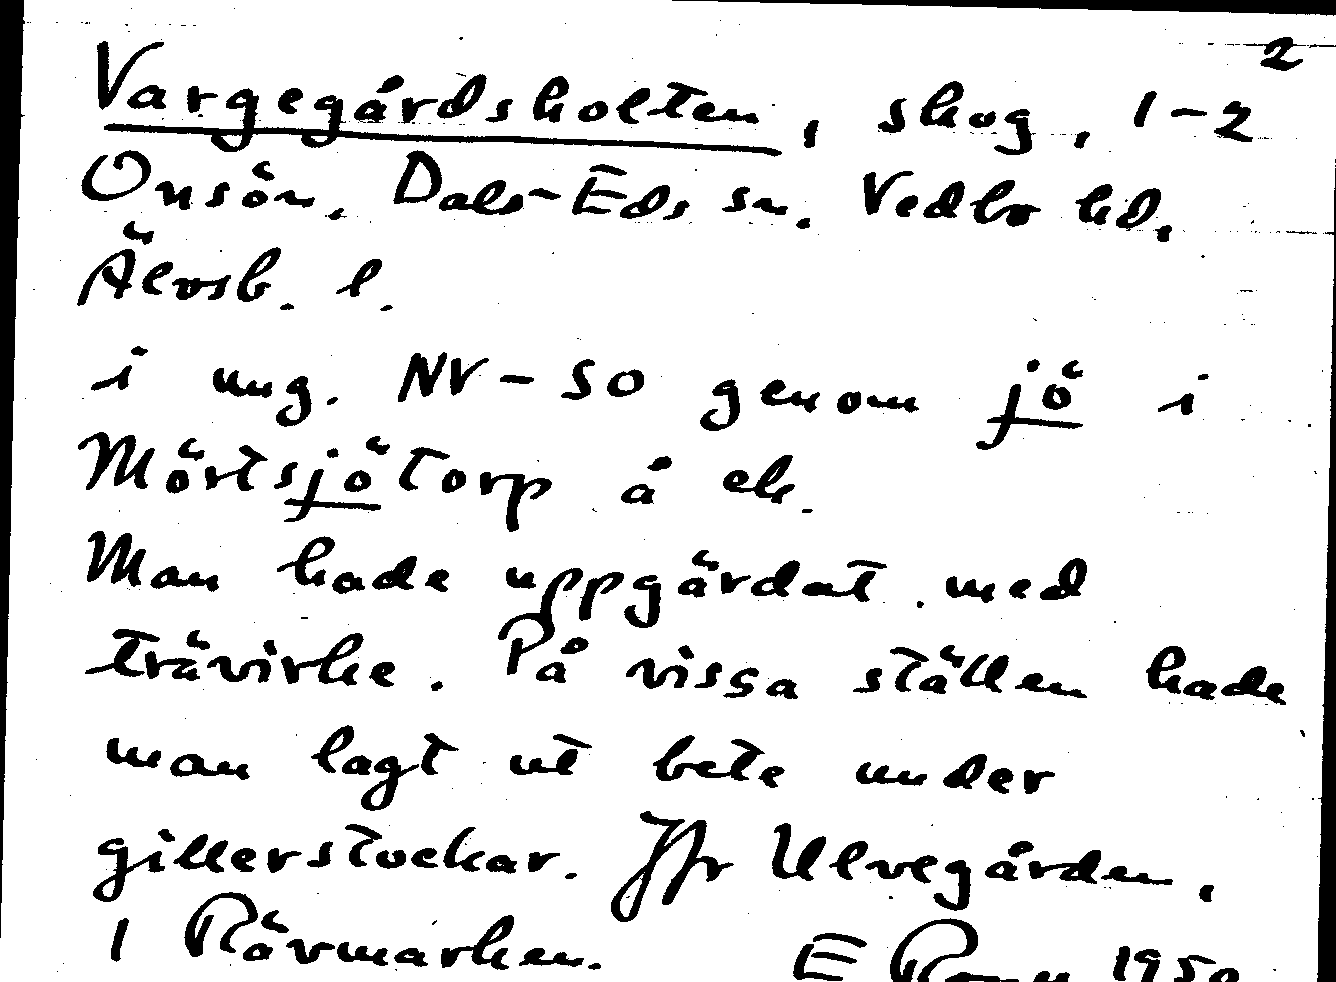 2
Vargegårdsholten, skog, 1-2
Onsön. Dals-Eds sn. Vedbo hd.
Älvsb. l.
i ung. NV-SO genom jö i
Mörtsjötorp å ek.
Man hade uppgärdat med
trävirke. På vissa ställen hade
man lagt ut bete under
gillerstockar. Jfr Ulvegården,
1 Rävmarken. E 1950